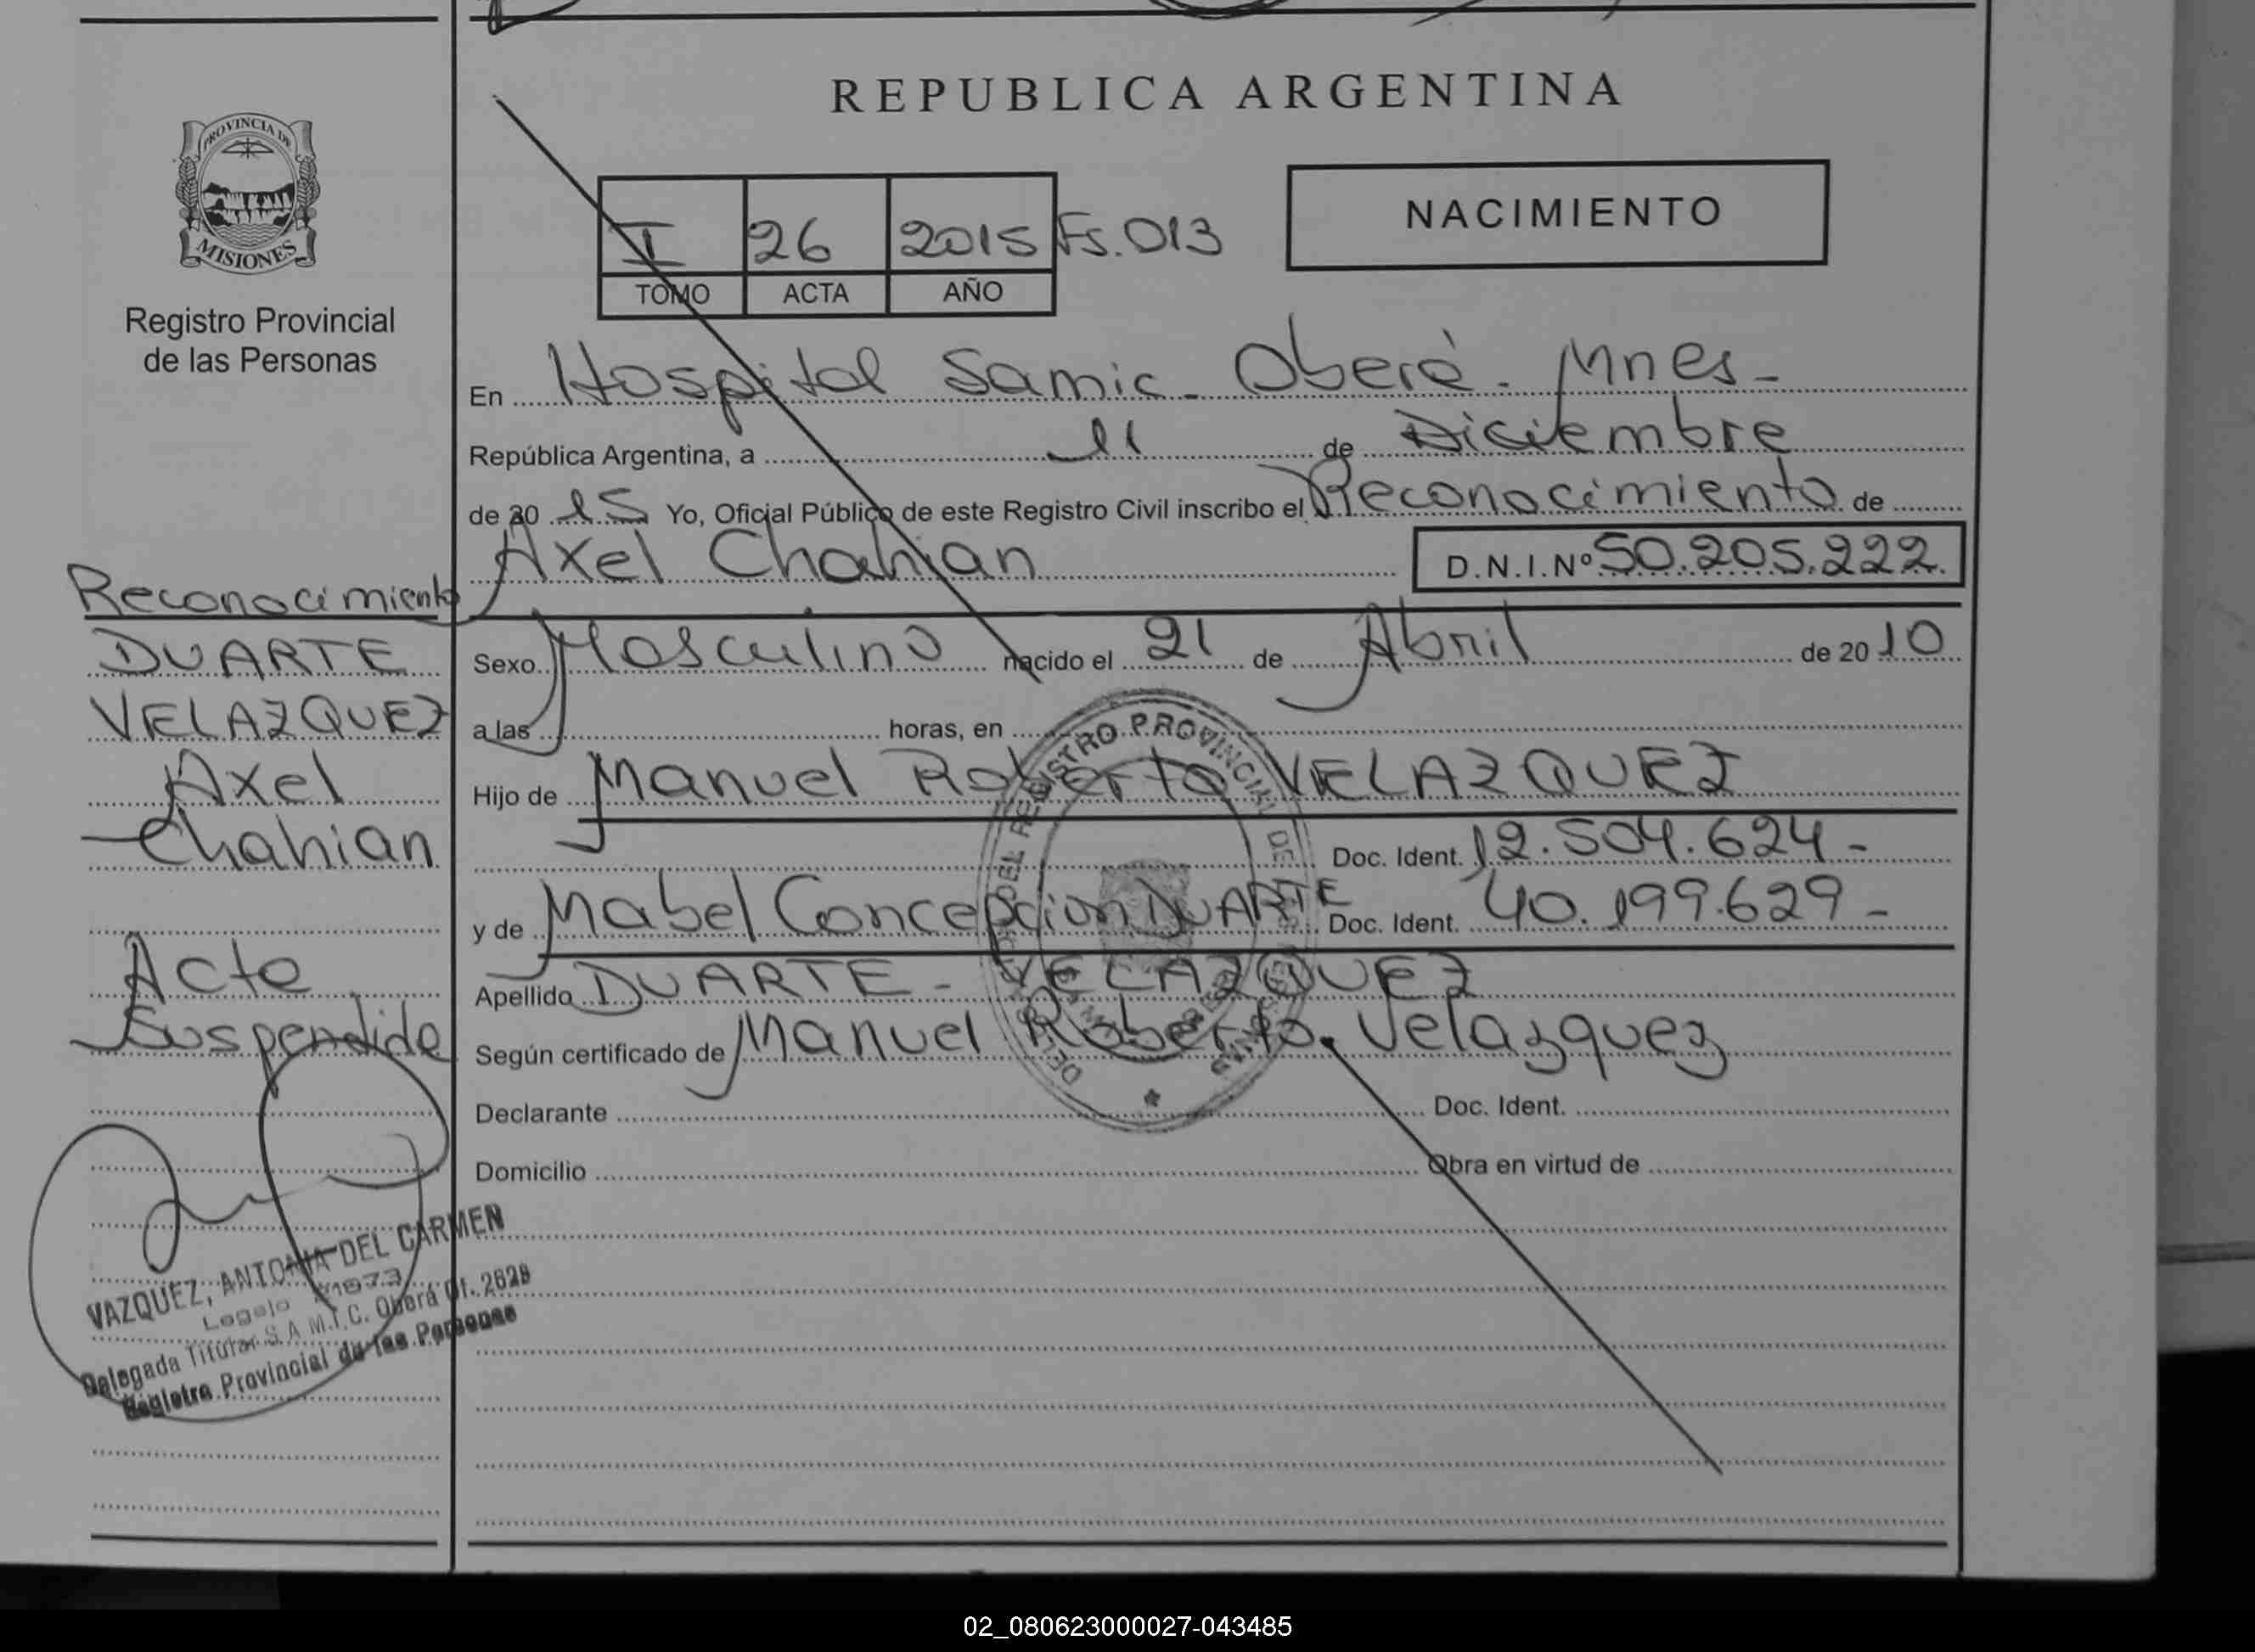 REPUBLICA ARGENTINA
PROVINCIA DE
MISIONES
Registro Provincial
de las Personas
I 26 2015 Fs. 013
TOMO ACTA AÑO
NACIMIENTO
En Hospital Samic - Oberá - Mnes -
República Argentina, a 11 de Diciembre
de 20 15 Yo, Oficial Público de este Registro Civil inscribo el Reconocimiento de
Axel Chahian D.N.I. Nº 50.205.222.
Sexo Masculino nacido el 21 de Abril de 20 10
a las horas, en
Hijo de Manuel Roberto VELAZQUEZ
Doc. Ident. 12.504.624 -
y de Mabel Concepcion DUARTE Doc. Ident. 40.199.629 -
Apellido DUARTE - VELAZQUEZ
Según certificado de Manuel Roberto Velazquez
Declarante Doc. Ident.
Domicilio Obra en virtud de
Reconocimiento
DUARTE
VELAZQUEZ
Axel
Chahian
Acta
Suspendida
VAZQUEZ, ANTONIA DEL CARMEN
Delegada Titular S.A.M.I.C. Oberá Of. 2628
Registro Provincial de las Personas
REGISTRO PROVINCIAL DE
02_080623000027-043485